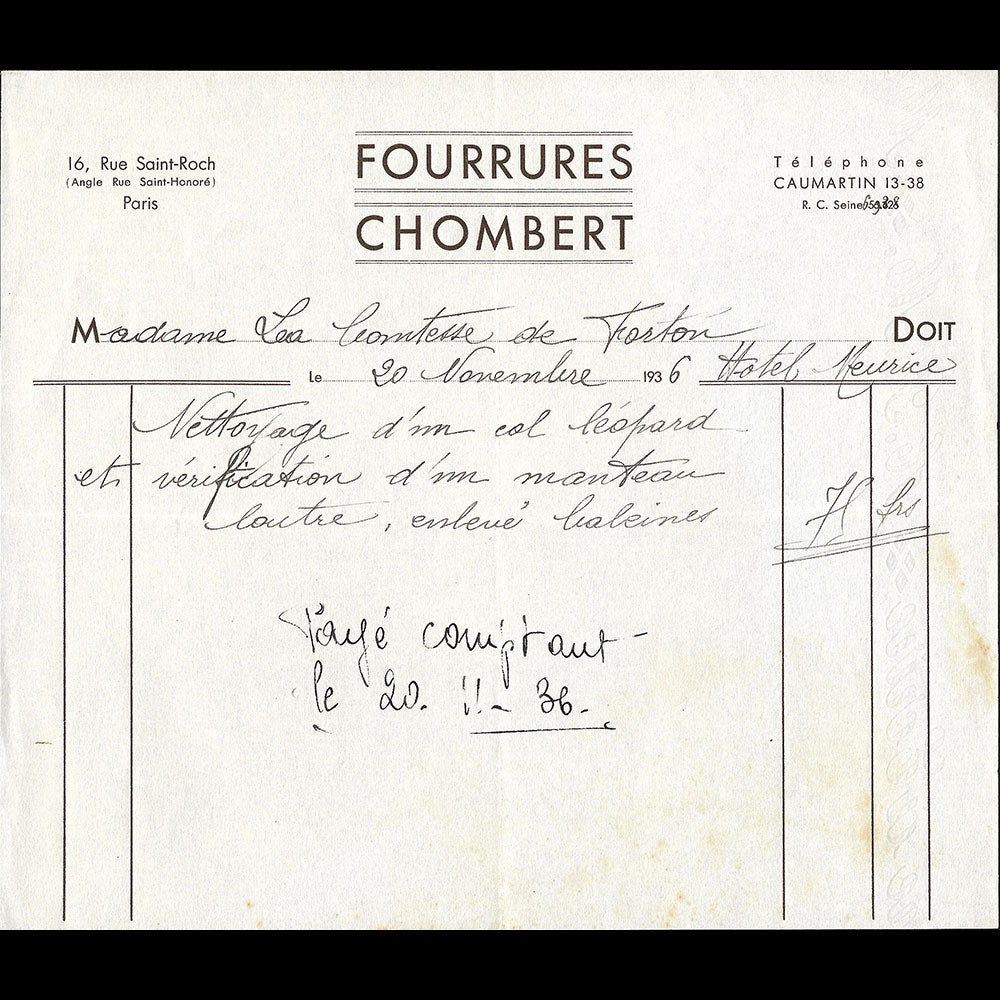 16, Rue Saint-Roch
(Angle Rue Saint-Honoré)
Paris
FOURRURES
CHOMBERT
Téléphone
CAUMARTIN 13-38
R. C. Seine
Madame La Comtesse de Forton DOIT
Le 20 Novembre 1936 Hotel Meurice
Nettoyage d'un col léopard
et vérification d'un manteau
loutre, enlevé baleines frs
Payé comptant -
le 20. 11 - 36.